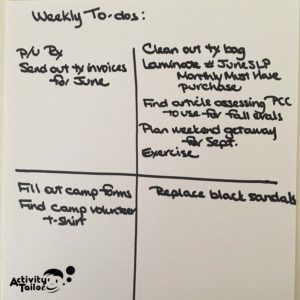 Weekly To-dos:
P/U Rx
Send out tx invoices
for June
Clean out tx bag
Laminate # JuneSLP
Monthly Must Have
purchase
Find article assessing PCC
to use for fall evals
Plan weekend getaway
for Sept.
Exercise
Fill out camp forms
Find camp volunteer
t-shirt
Replace black sandals
Activity
Tailor